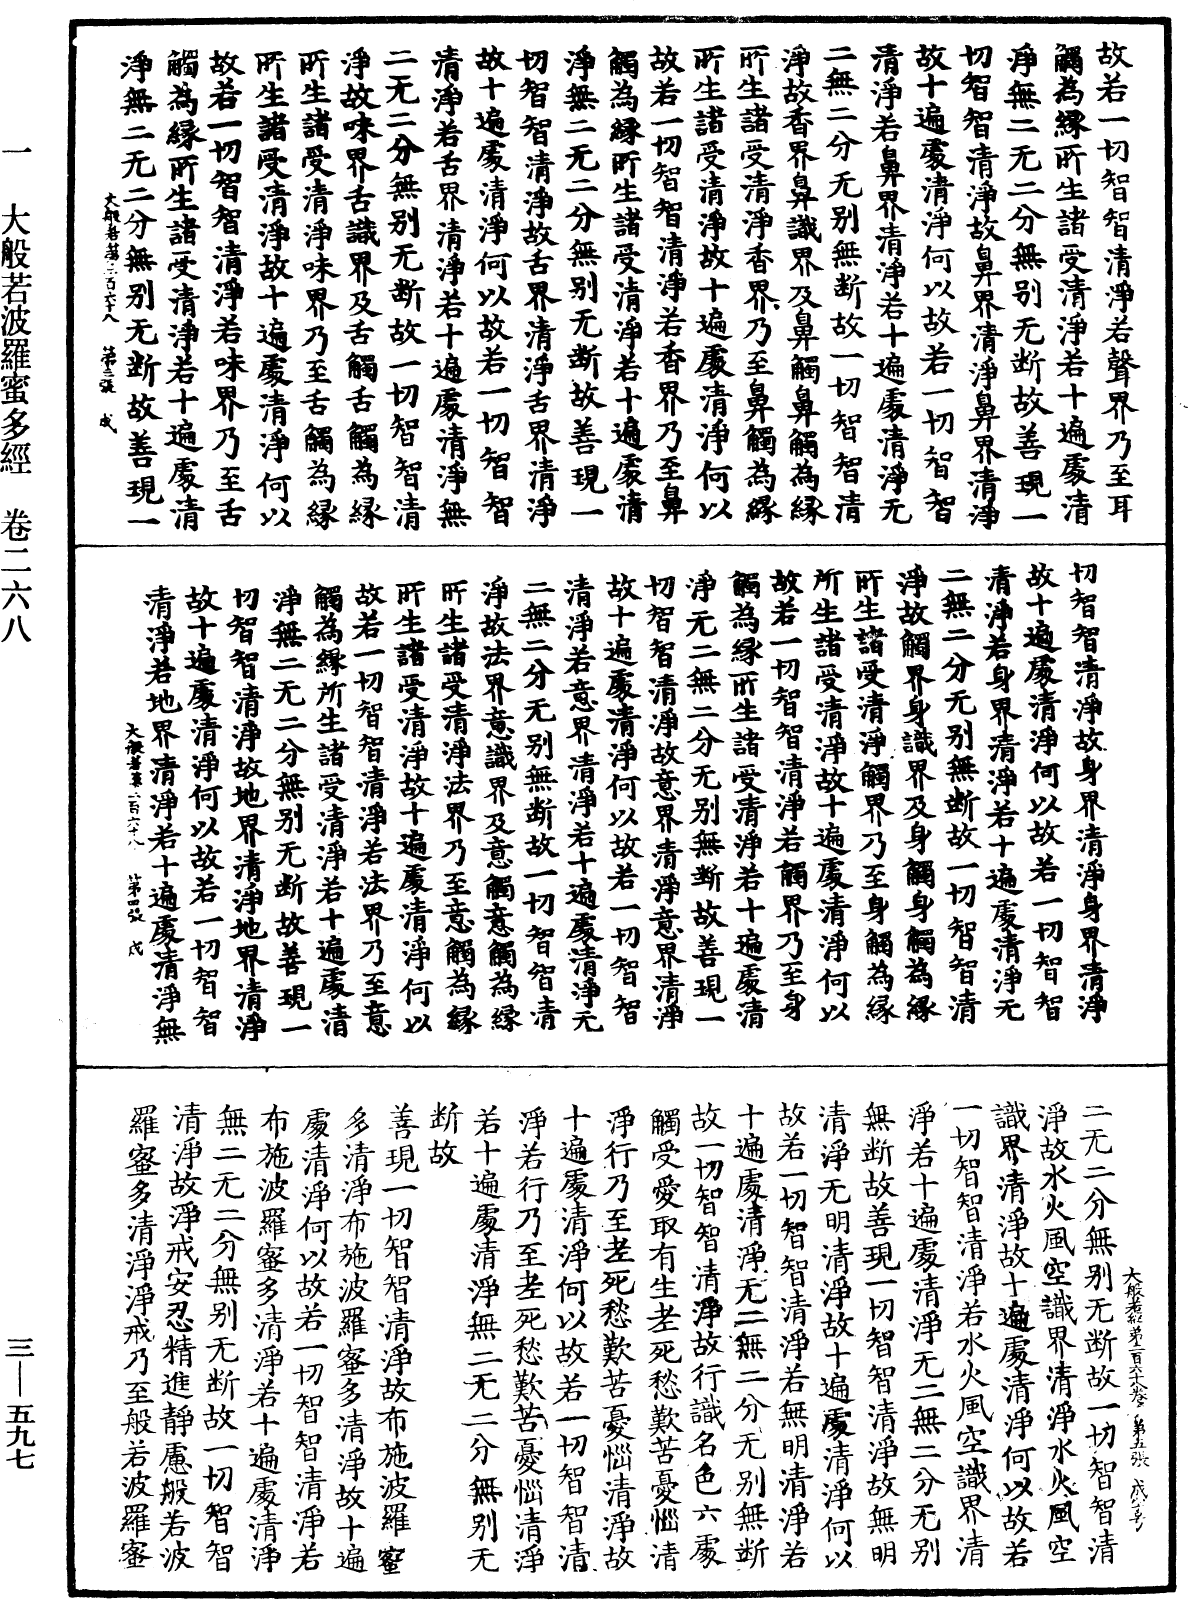 故若一切智智清淨若聲界乃至耳
觸為緣所生諸受清淨若十遍處清
淨無二无二分無别无断故善現一
切智智清淨故鼻界清淨鼻界清淨
故十遍處清淨何以故若一切智智
清淨若鼻界清淨若十遍處清淨无
二無二分无别無断故一切智智清
淨故香界鼻識界及鼻觸鼻觸為緣
所生諸受清淨香界乃至鼻觸為緣
所生諸受清淨故十遍處清淨何以
故若一切智智清淨若香界乃至鼻
觸為緣所生諸受清淨若十遍處清
淨無二无二分無别无断故善現一
切智智清淨故舌界清淨舌界清淨
故十遍處清淨何以故若一切智智
清淨若舌界清淨若十遍處清淨無
二无二分無别无断故一切智智清
淨故味界舌識界及舌觸舌觸為緣
所生諸受清淨味界乃至舌觸為緣
所生諸受清淨故十遍處清淨何以
故若一切智智清淨若味界乃至舌
觸為緣所生諸受清淨若十遍處清
淨無二无二分無别无断故善現一
大般若第二百六十八 第三張 戍
切智智清淨故身界清淨身界清淨
故十遍處清淨何以故若一切智智
清淨若身界清淨若十遍處清淨无
二無二分无别無断故一切智智清
淨故觸界身識界及身觸身觸為緣
所生諸受清淨觸界乃至身觸為緣
所生諸受清淨故十遍處清淨何以
故若一切智智清淨若觸界乃至身
觸為緣所生諸受清淨若十遍處清
淨无二無二分无别無断故善現一
切智智清淨故意界清淨意界清淨
故十遍處清淨何以故若一切智智
清淨若意界清淨若十遍處清淨无
二無二分无别無断故一切智智清
淨故法界意識界及意觸意觸為緣
所生諸受清淨法界乃至意觸為緣
所生諸受清淨故十遍處清淨何以
故若一切智智清淨若法界乃至意
觸為緣所生諸受清淨若十遍處清
淨無二无二分無别无断故善現一
切智智清淨故地界清淨地界清淨
故十遍處清淨何以故若一切智智
清淨若地界清淨若十遍處清淨無
大般若第二百六十八 第四張 戍
大般若經第二百六十八卷 第五張 戍字号
二无二分無别无断故一切智智清
淨故水火風空識界清淨水火風空
識界清淨故十遍處清淨何以故若
一切智智清淨若水火風空識界清
淨若十遍處清淨无二無二分无别
無断故善現一切智智清淨故無明
清淨无明清淨故十遍處清淨何以
故若一切智智清淨若無明清淨若
十遍處清淨无二無二分无别無断
故一切智智清淨故行識名色六處
觸受愛取有生老死愁歎苦憂惱清
淨行乃至老死愁歎苦憂惱清淨故
十遍處清淨何以故若一切智智清
淨若行乃至老死愁歎苦憂惱清淨
若十遍處清淨無二无二分無别无
断故
善現一切智智清淨故布施波羅蜜
多清淨布施波羅蜜多清淨故十遍
處清淨何以故若一切智智清淨若
布施波羅蜜多清淨若十遍處清淨
無二无二分無别无断故一切智智
清淨故淨戒安忍精進靜慮般若波
羅蜜多清淨淨戒乃至般若波羅蜜
一 大般若波羅蜜多經 卷二六八
三—五九七